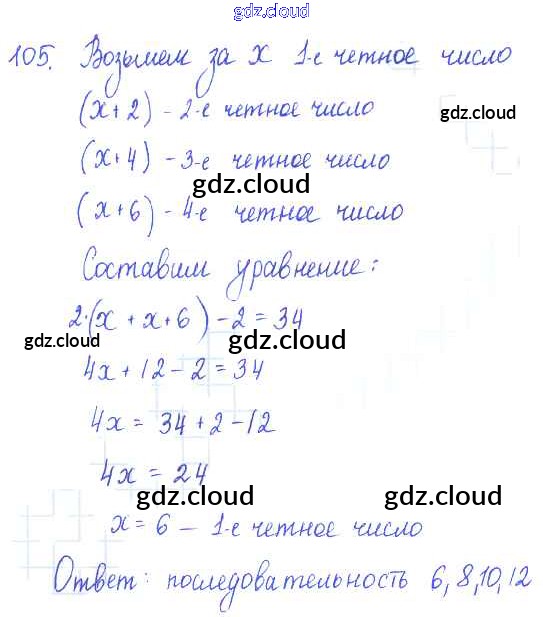 gdz.cloud
105. Возьмем за x 1-е четное число
(x+2) - 2-е четное число
gdz.cloud
(x+4) - 3-е четное число
gdz.cloud
(x+6) - 4-е четное число
Составим уравнение:
2·(x + x + 6) - 2 = 34
gdz.cloud gdz.cloud
4x + 12 - 2 = 34
4x = 34 + 2 - 12
4x = 24
gdz.cloud gdz.cloud
x = 6 — 1-е четное число
Ответ: последовательность 6, 8, 10, 12
gdz.cloud